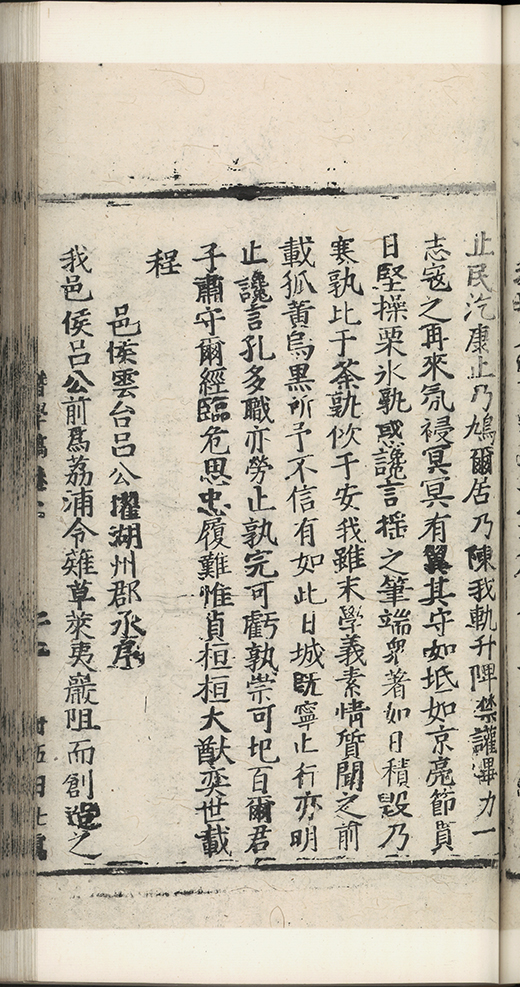 止民汔康止乃鳩爾居乃陳我軌升陴禁讙畢力一
志寇之再來氛祲冥冥有翼其守如坻如京亮節貫
日堅操栗氷孰惑讒言揺之筆端衆著如日積毀乃
寒孰比于荼孰佽于安我雖末學義素情質聞之前
載狐黃烏黒所予不信有如此日城既寧止行亦明
止讒言孔多職亦勞止孰完可虧孰崇可圯百爾君
子肅守爾經臨危思忠履難惟貞桓桓大猷奕世載
程
邑侯雲台呂公擢湖州郡丞序
我邑侯呂公前爲荔浦令薙草萊夷巖阻而創造之